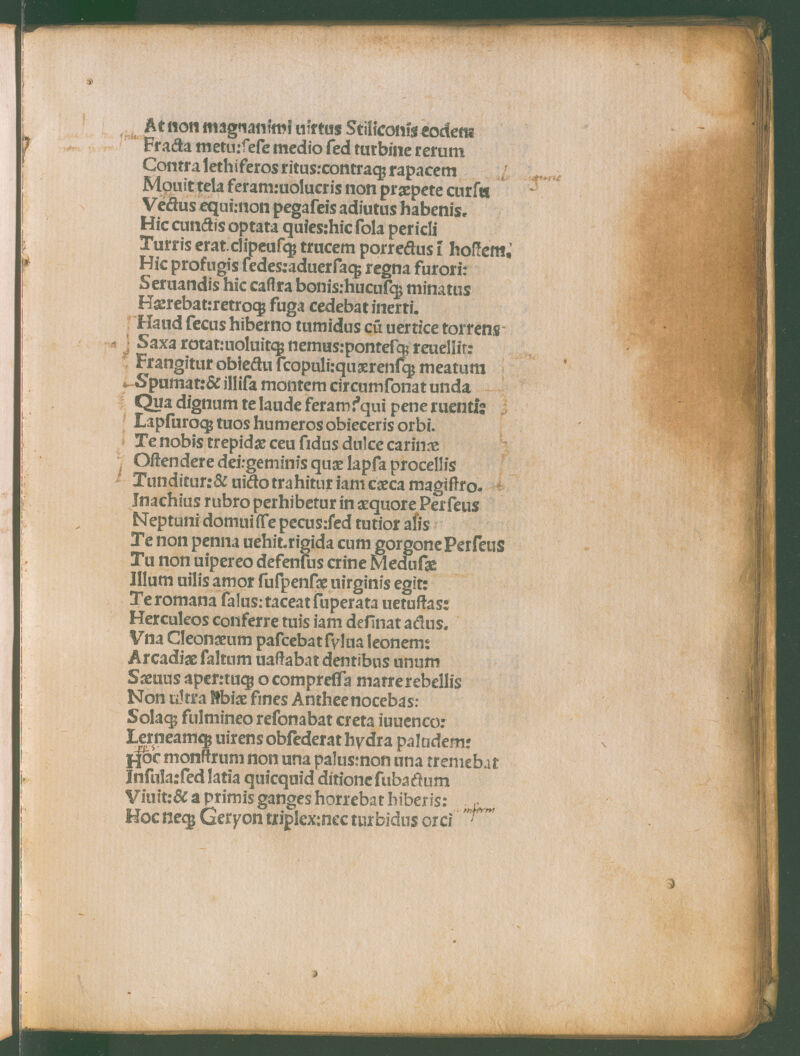 At non magnanimi uirtus Stiliconis eodem
Fracta metu:sese medio sed turbine rerum
Contra lethiferos ritus:contraqꝫ rapacem
Mouit tela feram:uolucris non præpete cursu
Vectus equi:non pegaseis adiutus habenis.
Hic cunctis optata quies:hic sola pericli
Turris erat.clipeusqꝫ trucem porrectus ī hostem.
Hic profugis sedes:aduersaqꝫ regna furori:
Seruandis hic castra bonis:hucusqꝫ minatus
Hærebat:retroqꝫ fuga cedebat inerti.
Haud secus hiberno tumidus cū uertice torrens
Saxa rotat:uoluitqꝫ nemus:pontesqꝫ reuellit:
Frangitur obiectu scopuli:quærensqꝫ meatum
Spumat:& illisa montem circumsonat unda
Qua dignum te laude feram?qui pene ruentis
Lapsuroqꝫ tuos humeros obieceris orbi.
Te nobis trepidæ ceu sidus dulce carinæ
Ostendere dei:geminis quæ lapsa procellis
Tunditur:& uicto trahitur iam cæca magistro.
Inachius rubro perhibetur in æquore Perseus
Neptuni domuisse pecus:sed tutior alis
Te non penna uehit.rigida cum gorgone Perseus
Tu non uipereo defensus crine Medusæ
Illum uilis amor suspensæ uirginis egit:
Te romana salus:taceat superata uetustas:
Herculeos conferre tuis iam desinat actus.
Vna Cleonæum pascebat sylua leonem:
Arcadiæ saltum uastabat dentibus unum
Sæuus aper:tuqꝫ o compressa matre rebellis
Non ultra libiæ fines Anthee nocebas:
Solaqꝫ fulmineo resonabat creta iuuenco:
Lerneamqꝫ uirens obsederat hydra paludem:
Hoc monstrum non una palus:non una tremebat
Insula:sed latia quicquid ditione subactum
Viuit:& a primis ganges horrebat hiberis:
Hoc neqꝫ Geryon triplex:nec turbidus orci